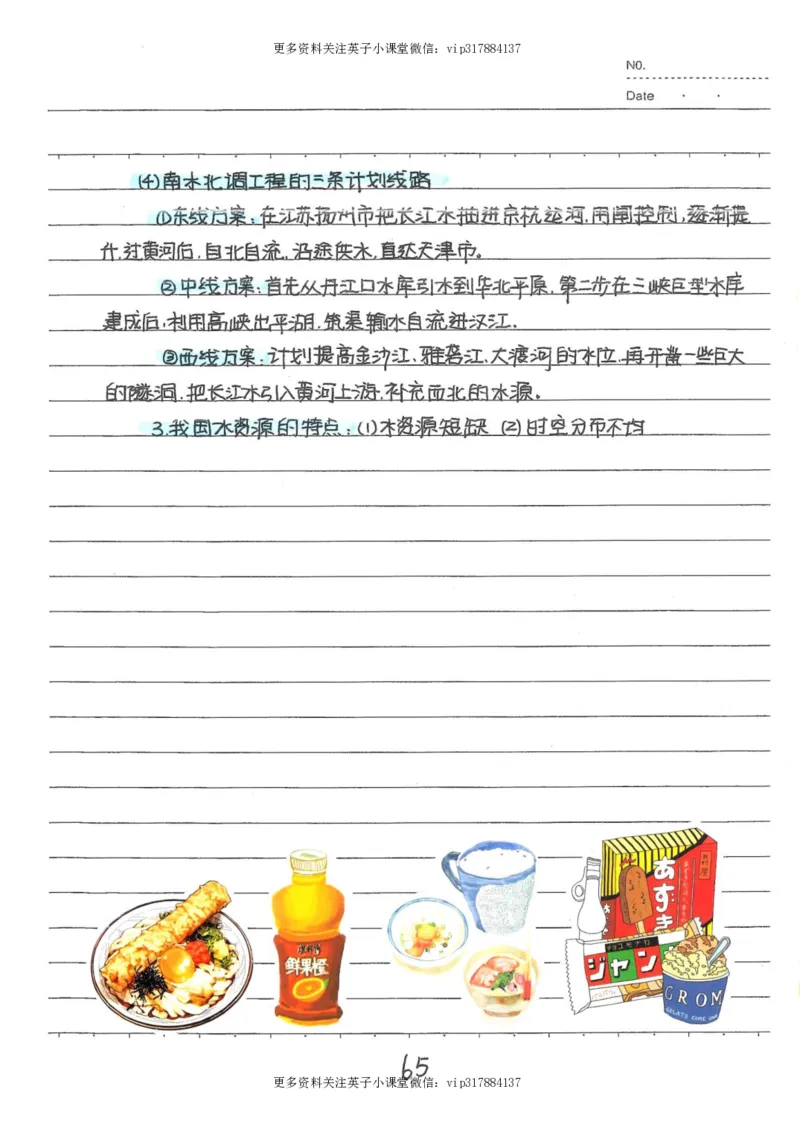 更多资料关注英子小课堂微信：vip317884137
NO.
Date
(4)南水北调工程的三条计划线路
①东线方案：在江苏扬州市把长江水抽进京杭运河，用闸控制，逐渐提
升，过黄河后，自北自流，沿途供水，直达天津市。
②中线方案：首先从丹江口水库引水到华北平原，第二步在三峡巨型水库
建成后，利用高峡出平湖，筑渠输水自流进汉江。
③西线方案：计划提高金沙江、雅砻江、大渡河的水位，再开凿一些巨大
的隧洞，把长江水引入黄河上游，补充西北的水源。
3.我国水资源的特点：(1)水资源短缺 (2)时空分布不均
鲜果橙
あずき
村屋
チョコモナカ
ジャン
GROM
GELATO COME UNA
65
更多资料关注英子小课堂微信：vip317884137